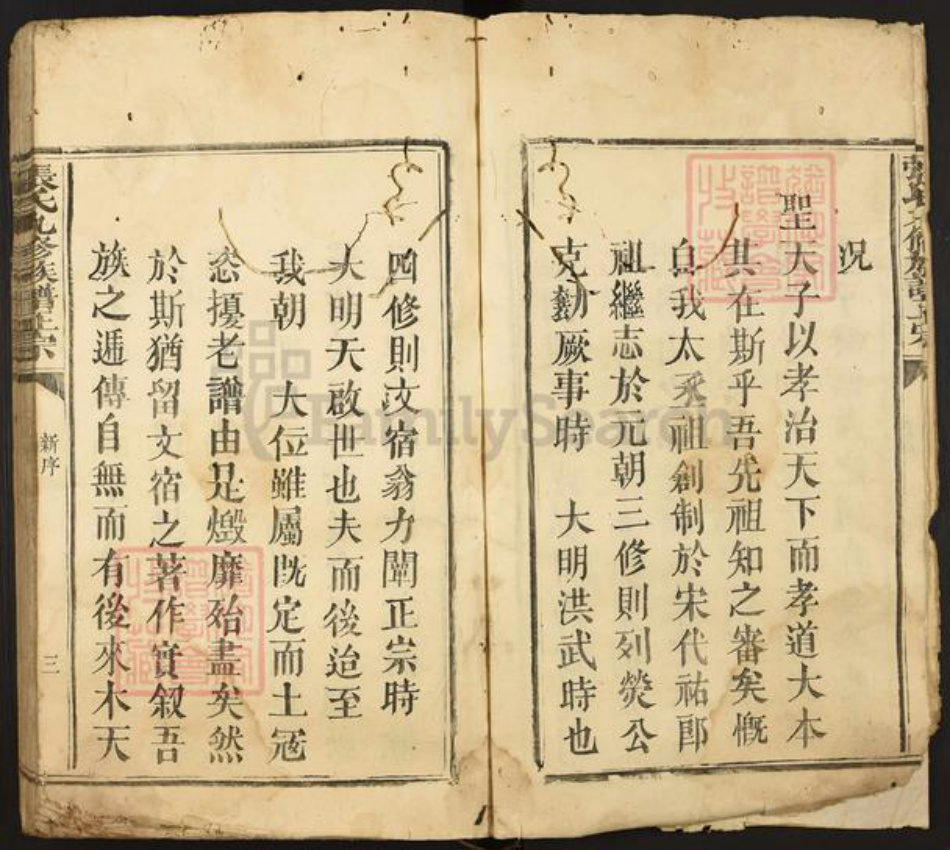 況
聖天子以孝治天下而孝道大本
其在斯乎吾先祖知之審矣慨
自我太承祖創制於宋代祐郎
祖繼志於元朝三修則列熒公
克勷厥事時　大明洪武時也
四修則文宿翁力闡正宗時
大明天啟世也夫而後迨至
我朝　大位雖屬既定而土寇
恣擾老譜由是燬靡殆盡矣然
於斯猶留文宿之著作實叙吾
族之遞傳自無而有後來木天
張氏九修族譜正宗
新序
三
FamilySearch